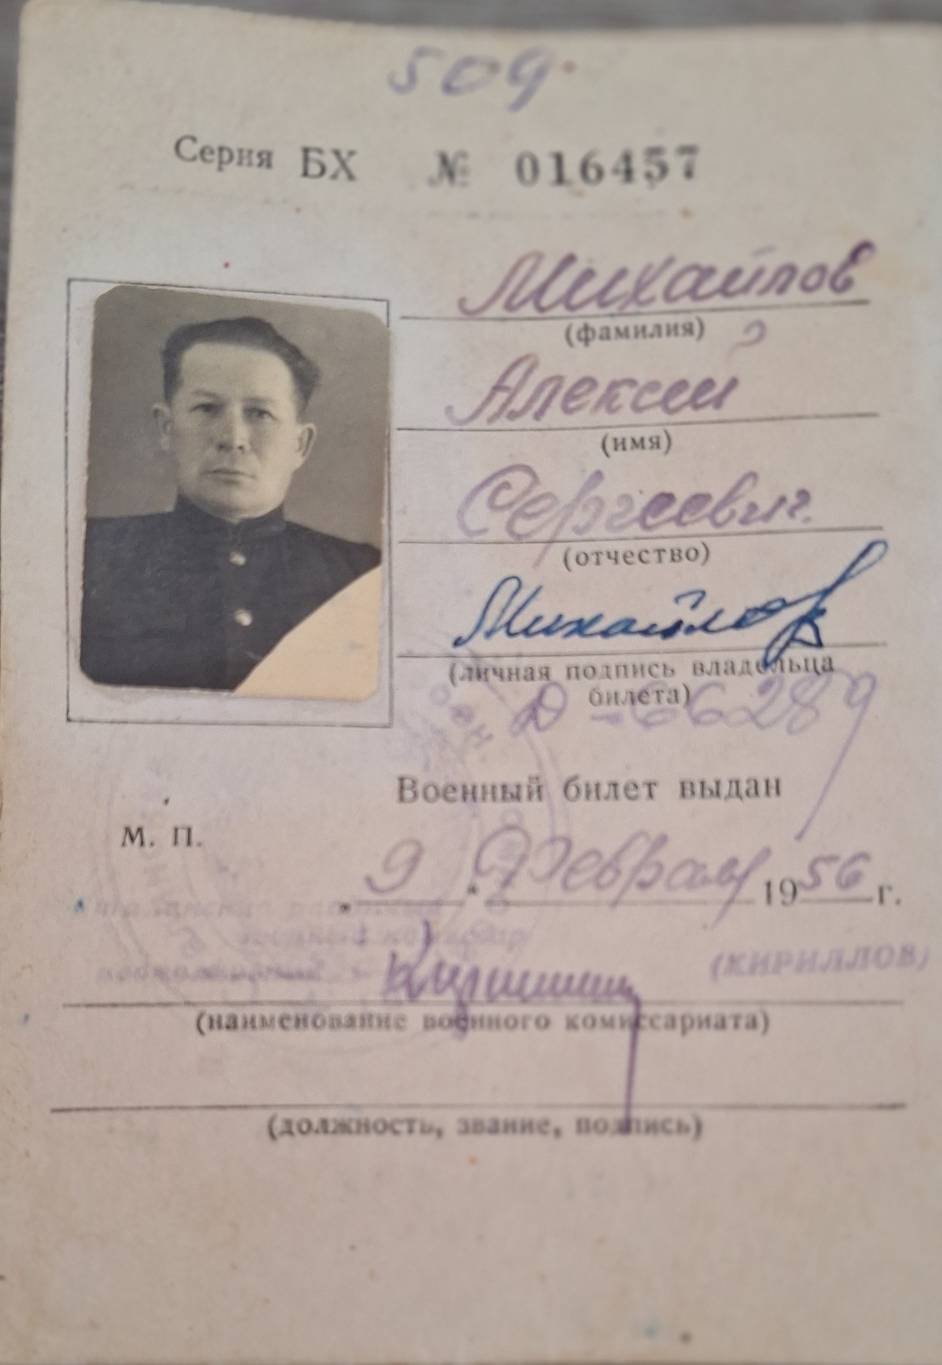 509
Серия БХ № 016457
Михайлов
(фамилия)
Алексей
(имя)
Сергеевич.
(отчество)
Михайлов
(личная подпись владельца
билета)
Д-66289
Военный билет выдан
М. П.
"9" Февраля 1956 г.
военный комиссар
подполковник
(КИРИЛЛОВ)
(наименование военного комиссариата)
(должность, звание, подпись)